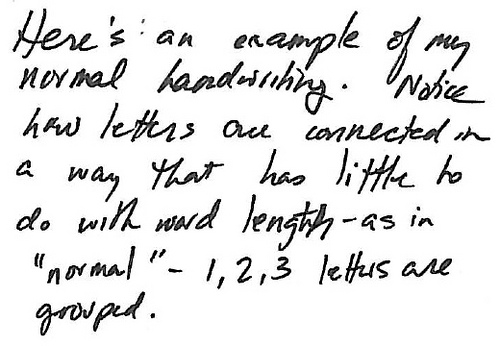 Here's an example of my
normal handwriting. Notice
how letters are connected in
a way that has little to
do with word length - as in
"normal" - 1, 2, 3 letters are
grouped.